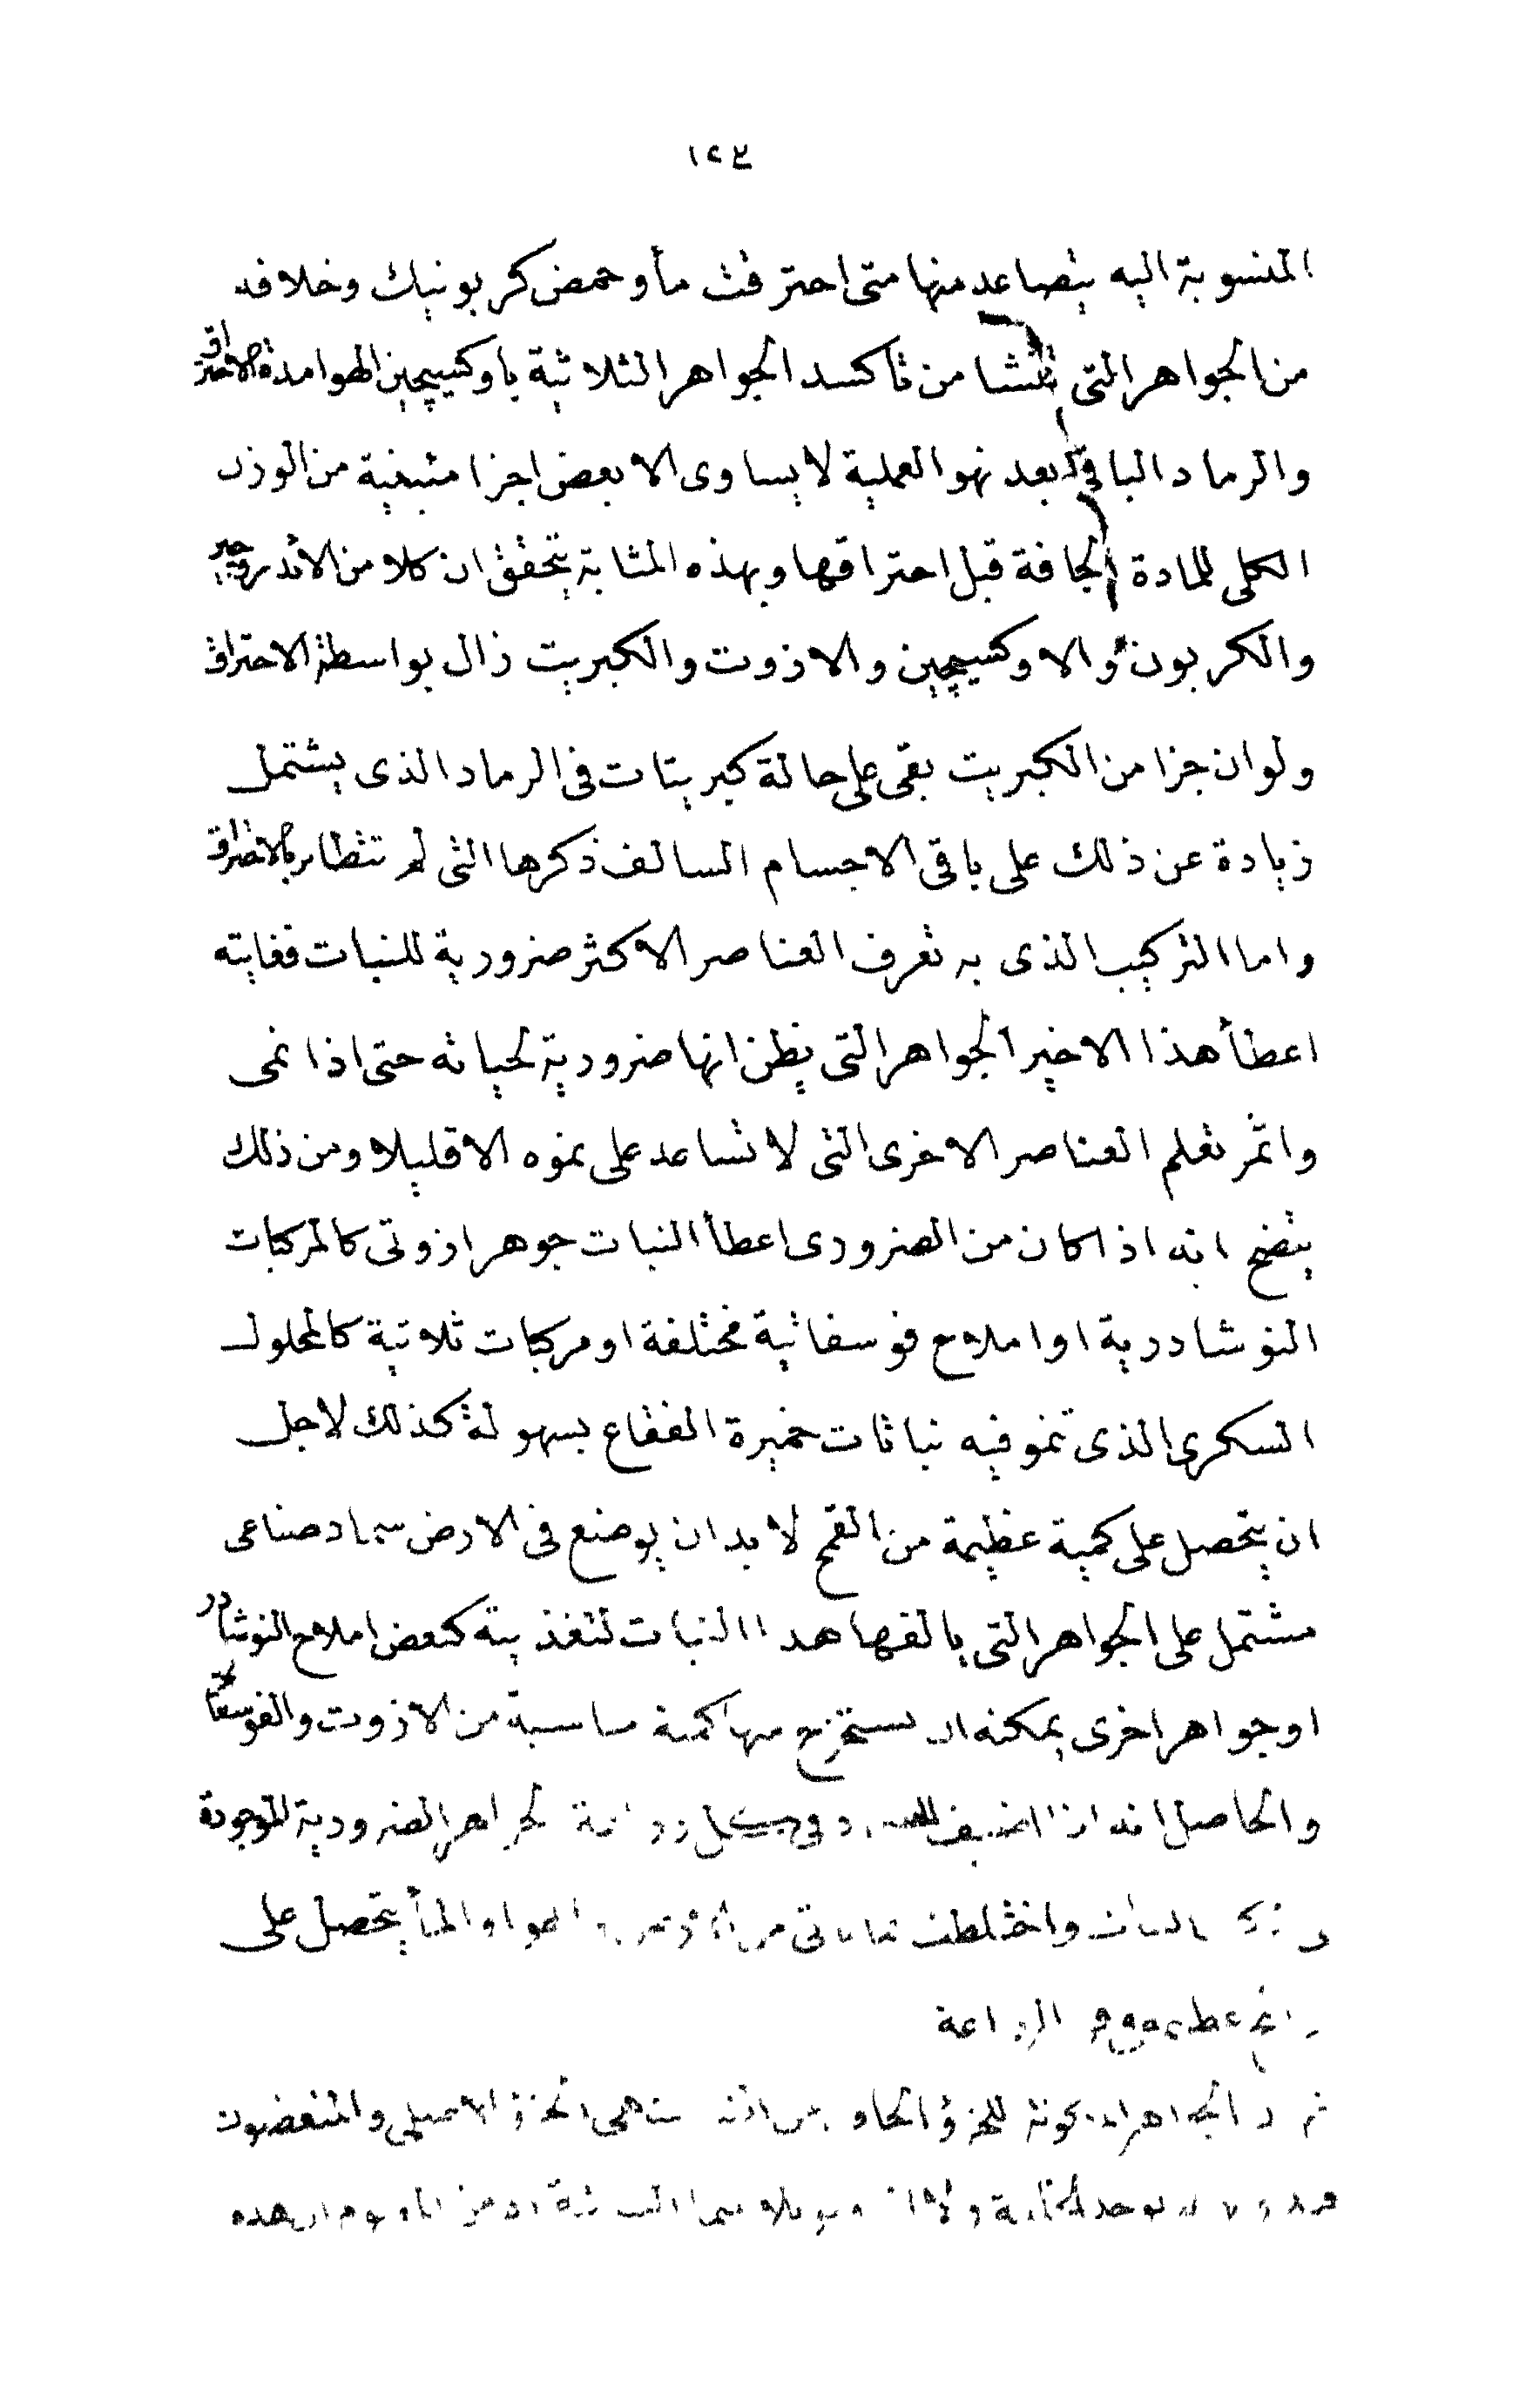 ١٢٣
المنسوبة اليه يتصاعد منها متى احترقت مأ وحمض كربونيك وخلافه
من الجواهر التى تنشا من تاكسد الجواهر الثلاثية باوكسيچين الهوا مدة الاحتراق
والرماد الباقى بعد نهو العملية لا يساوى الا بعض اجزا مئينية من الوزن
الكلى للمادة الجافة قبل احتراقها وبهذه المثابة يتحقق ان كلا من الأندروجين
والكربون والاوكسيچين والازوت والكبريت زال بواسطة الاحتراق
ولو ان جزا من الكبريت بقى على حالة كبريتات فى الرماد الذى يشتمل
زيادة عن ذلك على باقى الاجسام السالف ذكرها التى لم تتطاير
واما التركيب الذى به تعرف العناصر الاكثر ضرورية للنبات فغايته
اعطأ هذا الاخير الجواهر التى يظن انها ضرورية لحياته حتى اذا نمى
واثمر تعلم العناصر الاخرى التى لا تساعد على نموه الا قليلا ومن ذلك
يتضح انه اذا كان من الضرورى اعطأ النبات جوهر ازوتى كالمركبات
النوشادرية او املاح فوسفاتية مختلفة او مركبات ثلاثية كالمحلول
السكرى الذى تنمو فيه نباتات خميرة الفقاع بسهولة كذلك لاجل
ان يتحصل على كمية عظيمة من القمح لا بد ان يوضع فى الارض سماد صناعى
مشتمل على الجواهر التى يالفها هذا النبات لتغذيته كبعض املاح النوشادر
او جواهر اخرى يمكنه ان يستخرج منها كمية مناسبة من الازوت والفوسفات
والحاصل انه اذا اضيف الجواهر الضرورية الموجودة
واختلطت الهوا والمأ يتحصل على
الزراعة
الجواهر المكونة للجزؤ الاصلى
هذه